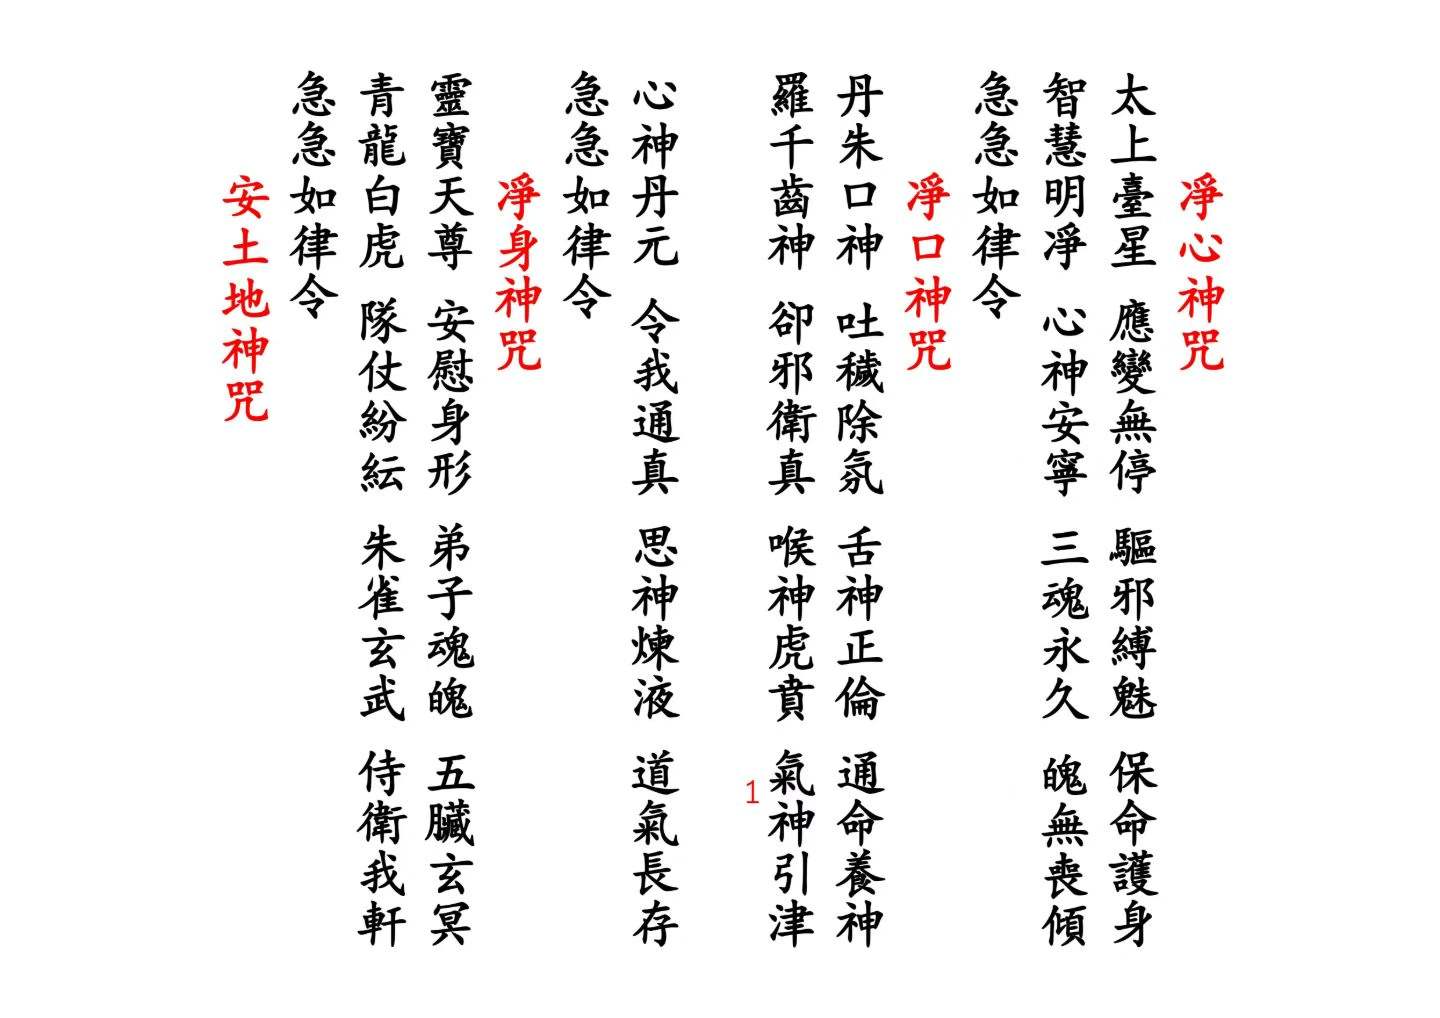 淨心神咒
太上臺星 應變無停 驅邪縛魅 保命護身
智慧明淨 心神安寧 三魂永久 魄無喪傾
急急如律令
淨口神咒
丹朱口神 吐穢除氛 舌神正倫 通命養神
羅千齒神 卻邪衛真 喉神虎賁 氣神引津
1
心神丹元 令我通真 思神煉液 道氣長存
急急如律令
淨身神咒
靈寶天尊 安慰身形 弟子魂魄 五臟玄冥
青龍白虎 隊仗紛紜 朱雀玄武 侍衛我軒
急急如律令
安土地神咒